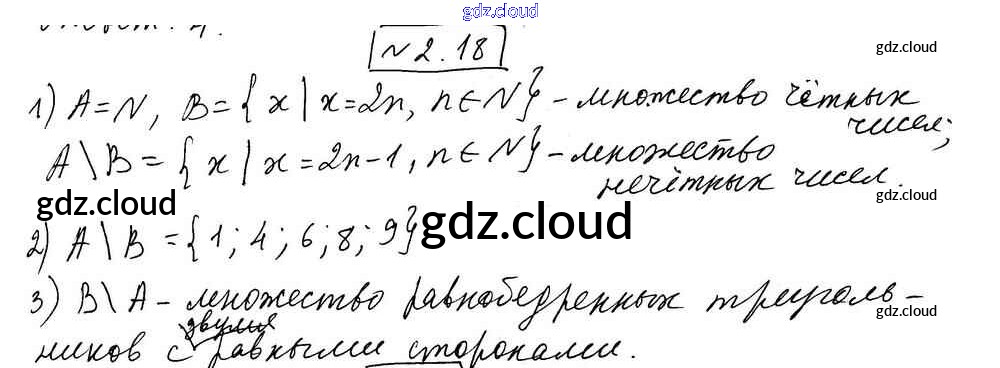 gdz.cloud
№2.18
gdz.cloud
1) A=N, B={x|x=2n, n∈N} - множество чётных
чисел;
A\B={x|x=2n-1, n∈N} - множество
нечётных чисел.
gdz.cloud
gdz.cloud
gdz.cloud
2) A\B={1; 4; 6; 8; 9}
3) B\A - множество равнобедренных треуголь-
gdz.cloud
двумя
ников с равными сторонами.